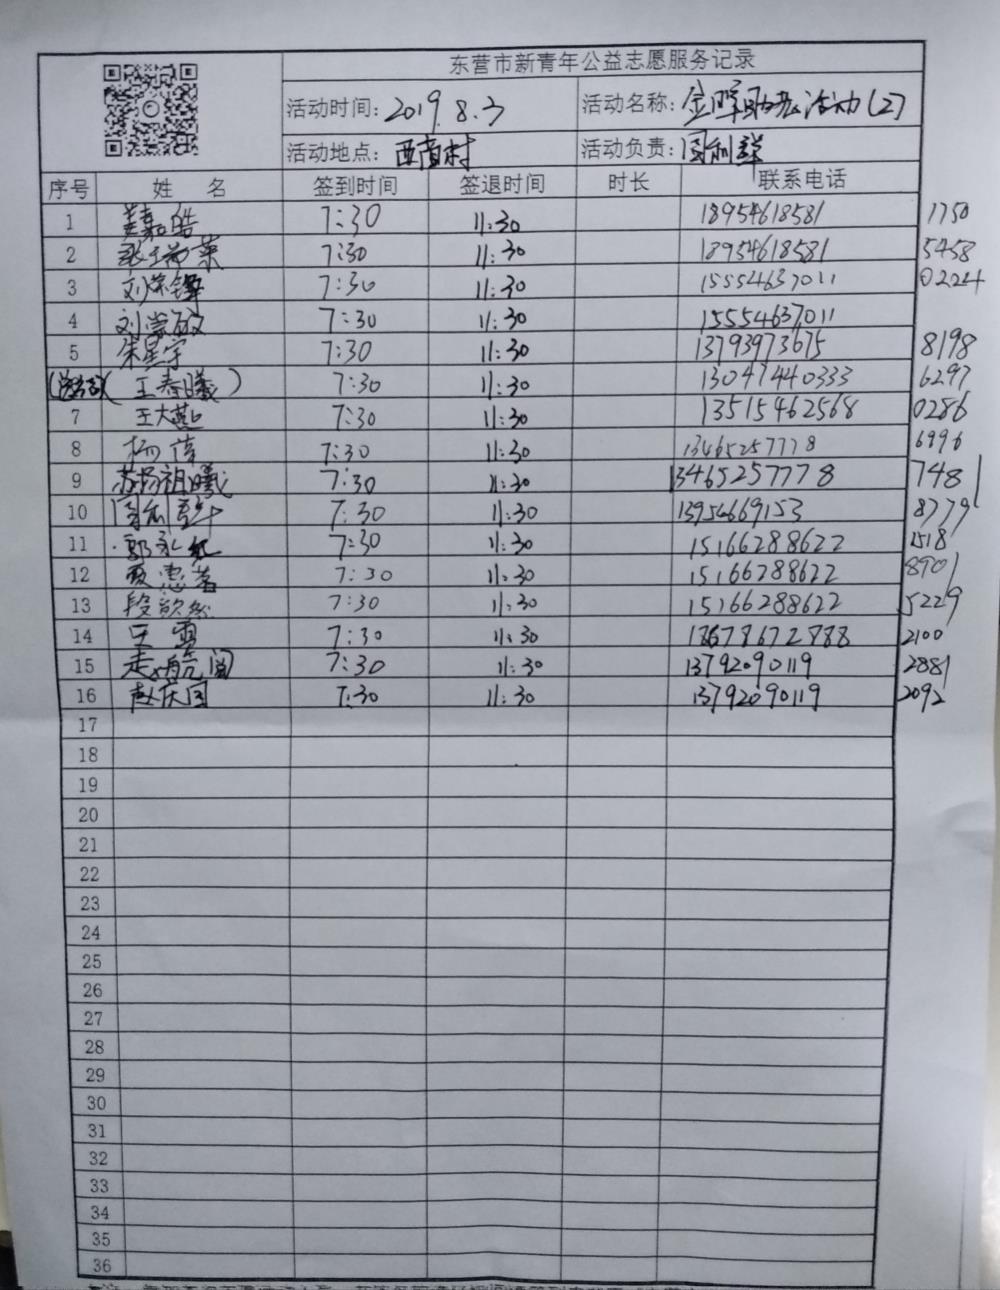 东营市新青年公益志愿服务记录
活动时间: 2019.8.3 活动名称: 金晖助老活动(2)
活动地点: 西商村 活动负责: 周利群
序号 姓名 签到时间 签退时间 时长 联系电话
1 姜嘉皓 7:30 11:30 18954618581 1750
2 7:30 11:30 18954618581 5458
3 刘荣锋 7:30 11:30 15554637011 0224
4 刘崇啟 7:30 11:30 15554637011
5 朱星宇 7:30 11:30 13793973675 8198
(王春曦) 7:30 11:30 13047440333 6297
7 王大超 7:30 11:30 13515462568 0286
8 杨倩 7:30 11:30 13465257778 6996
9 苏杨祖曦 7:30 11:30 13465257778 7481
10 周利群 7:30 11:30 13954669153 8779
11 郭永红 7:30 11:30 15166288622 1518
12 贾惠茗 7:30 11:30 15166288622 8901
13 段歆然 7:30 11:30 15166288622 5229
14 王雪 7:30 11:30 18678672888 2100
15 7:30 11:30 13792090119 2881
16 赵庆国 7:30 11:30 13792090119 2092
17
18
19
20
21
22
23
24
25
26
27
28
29
30
31
32
33
34
35
36